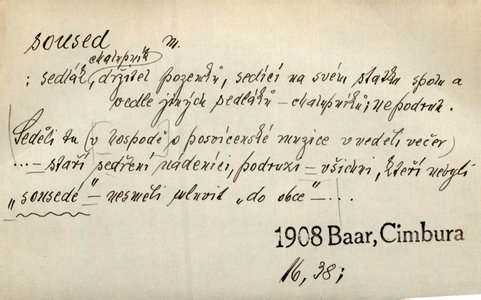 soused m.
chalupník
: sedlák, držitel pozemků, sedící na svém statku spolu a
vedle jiných sedláků – chalupníků; ne podruh.
Seděli tu (v hospodě o posvícenské muzice v neděli večer)
... – staří sedření nádeníci, podruzi – všichni, kteří nebyli
„sousedé" – nesměli mluvit „do obce" – ...
1908 Baar, Cimbura
16, 38;